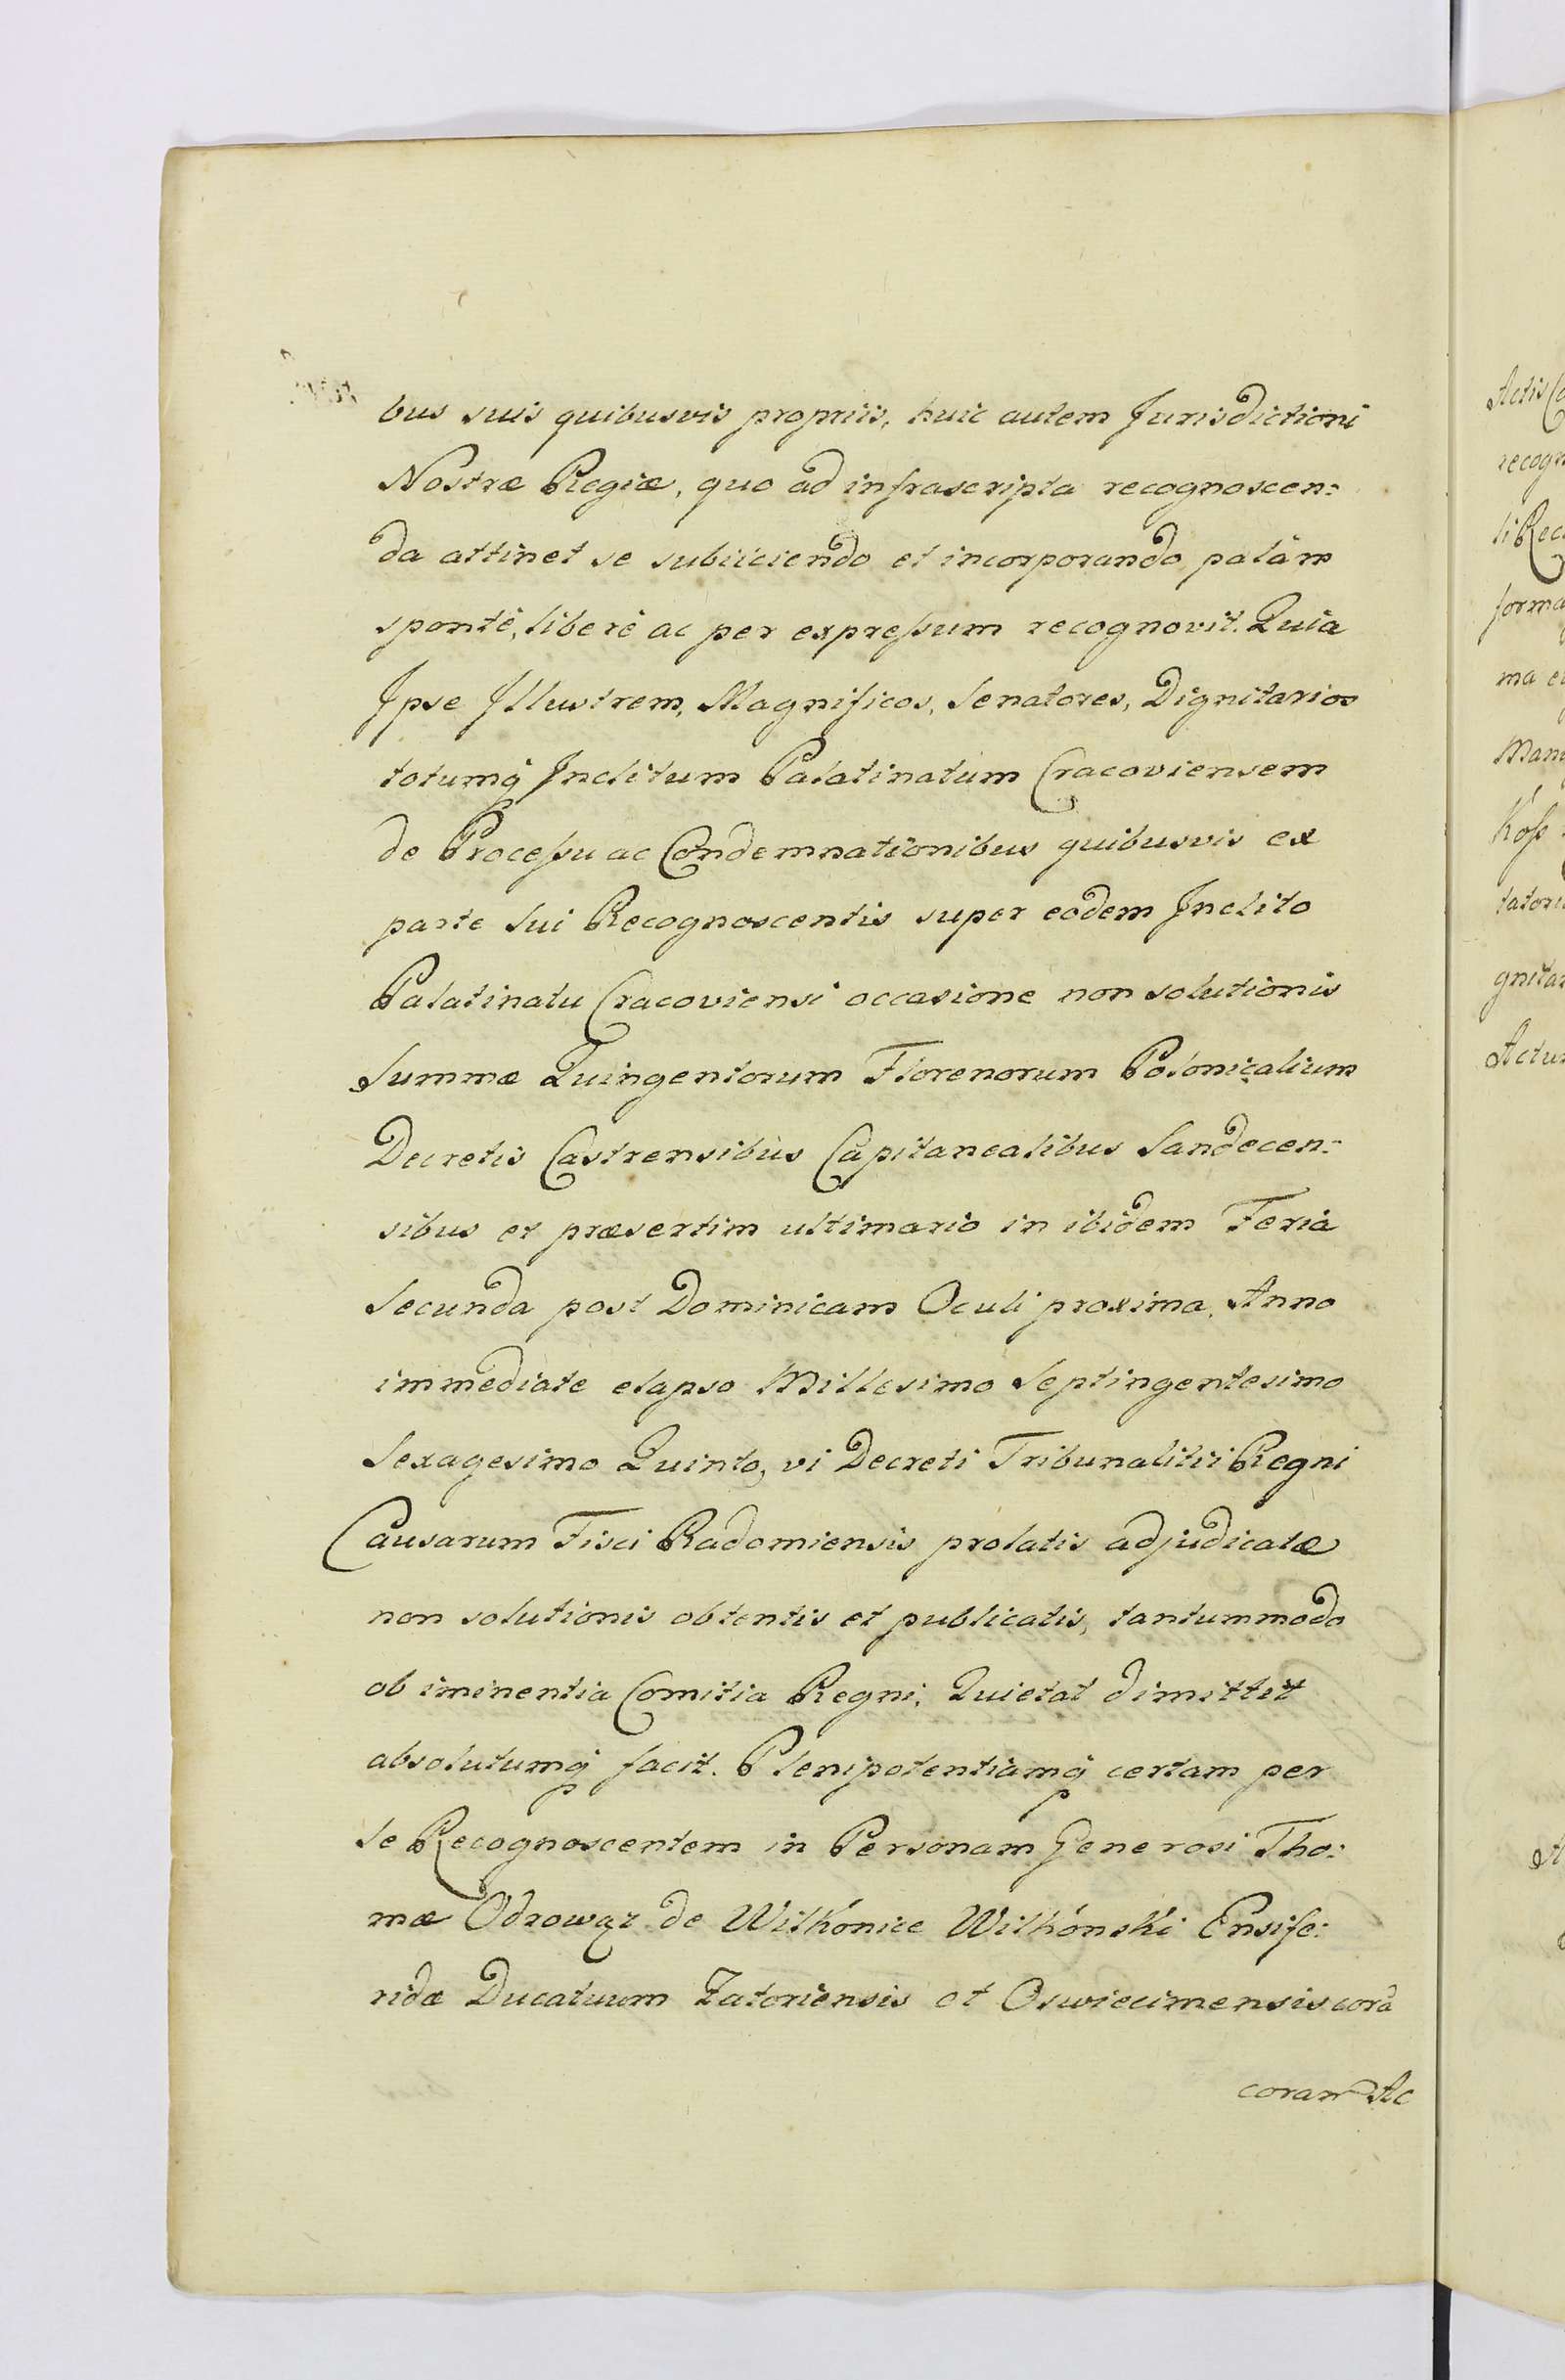 bus suis quibusvis propriis, huic autem Jurisdictioni
Nostræ Regiæ, quo ad infrascripta recognoscen:
da attinet se subiiciendo et incorporando palàm
spontè, liberè ac per expreſsum recognovit. Quia
Ipse Illustrem, Magnificos, Senatores, Dignitarios
totumq́ Inclitum Palatinatum Cracoviensem
de Proceſsu ac Condemnationibus quibusvis ex
parte sui Recognoscentis super eodem Inclito
Palatinatu Cracoviensi occasione non solutionis
Summæ Quingentorum Florenorum Polonicalium
Decretis Castrensibus Capitanealibus Sandecen:
sibus et præsertim ultimario in ibidem Feria
Secunda post Dominicam Oculi proxima, Anno
immediate elapso Millesimo Septingentesimo
Sexagesimo Quinto, vi Decreti Tribunalitii Regni
Causarum Fisci Radomiensis prolatis adjudicatæ
non solutionis obtentis et publicatis, tantummodo
ob iminentia Comitia Regni, Quietat dimittit
absolutumq́ facit. Plenipotentiamq́ certam per
se Recognoscentem in Personam Generosi Tho:
mæ Odrowąz de Wilkonice Wilkónski Ensife:
ridæ Ducatuum Zatoriensis et Oswiecimensis corā
coram Ac
Actis
recogn
li Rec
forma
ma
Mani
Koſs
tatori
gnitar
Actu